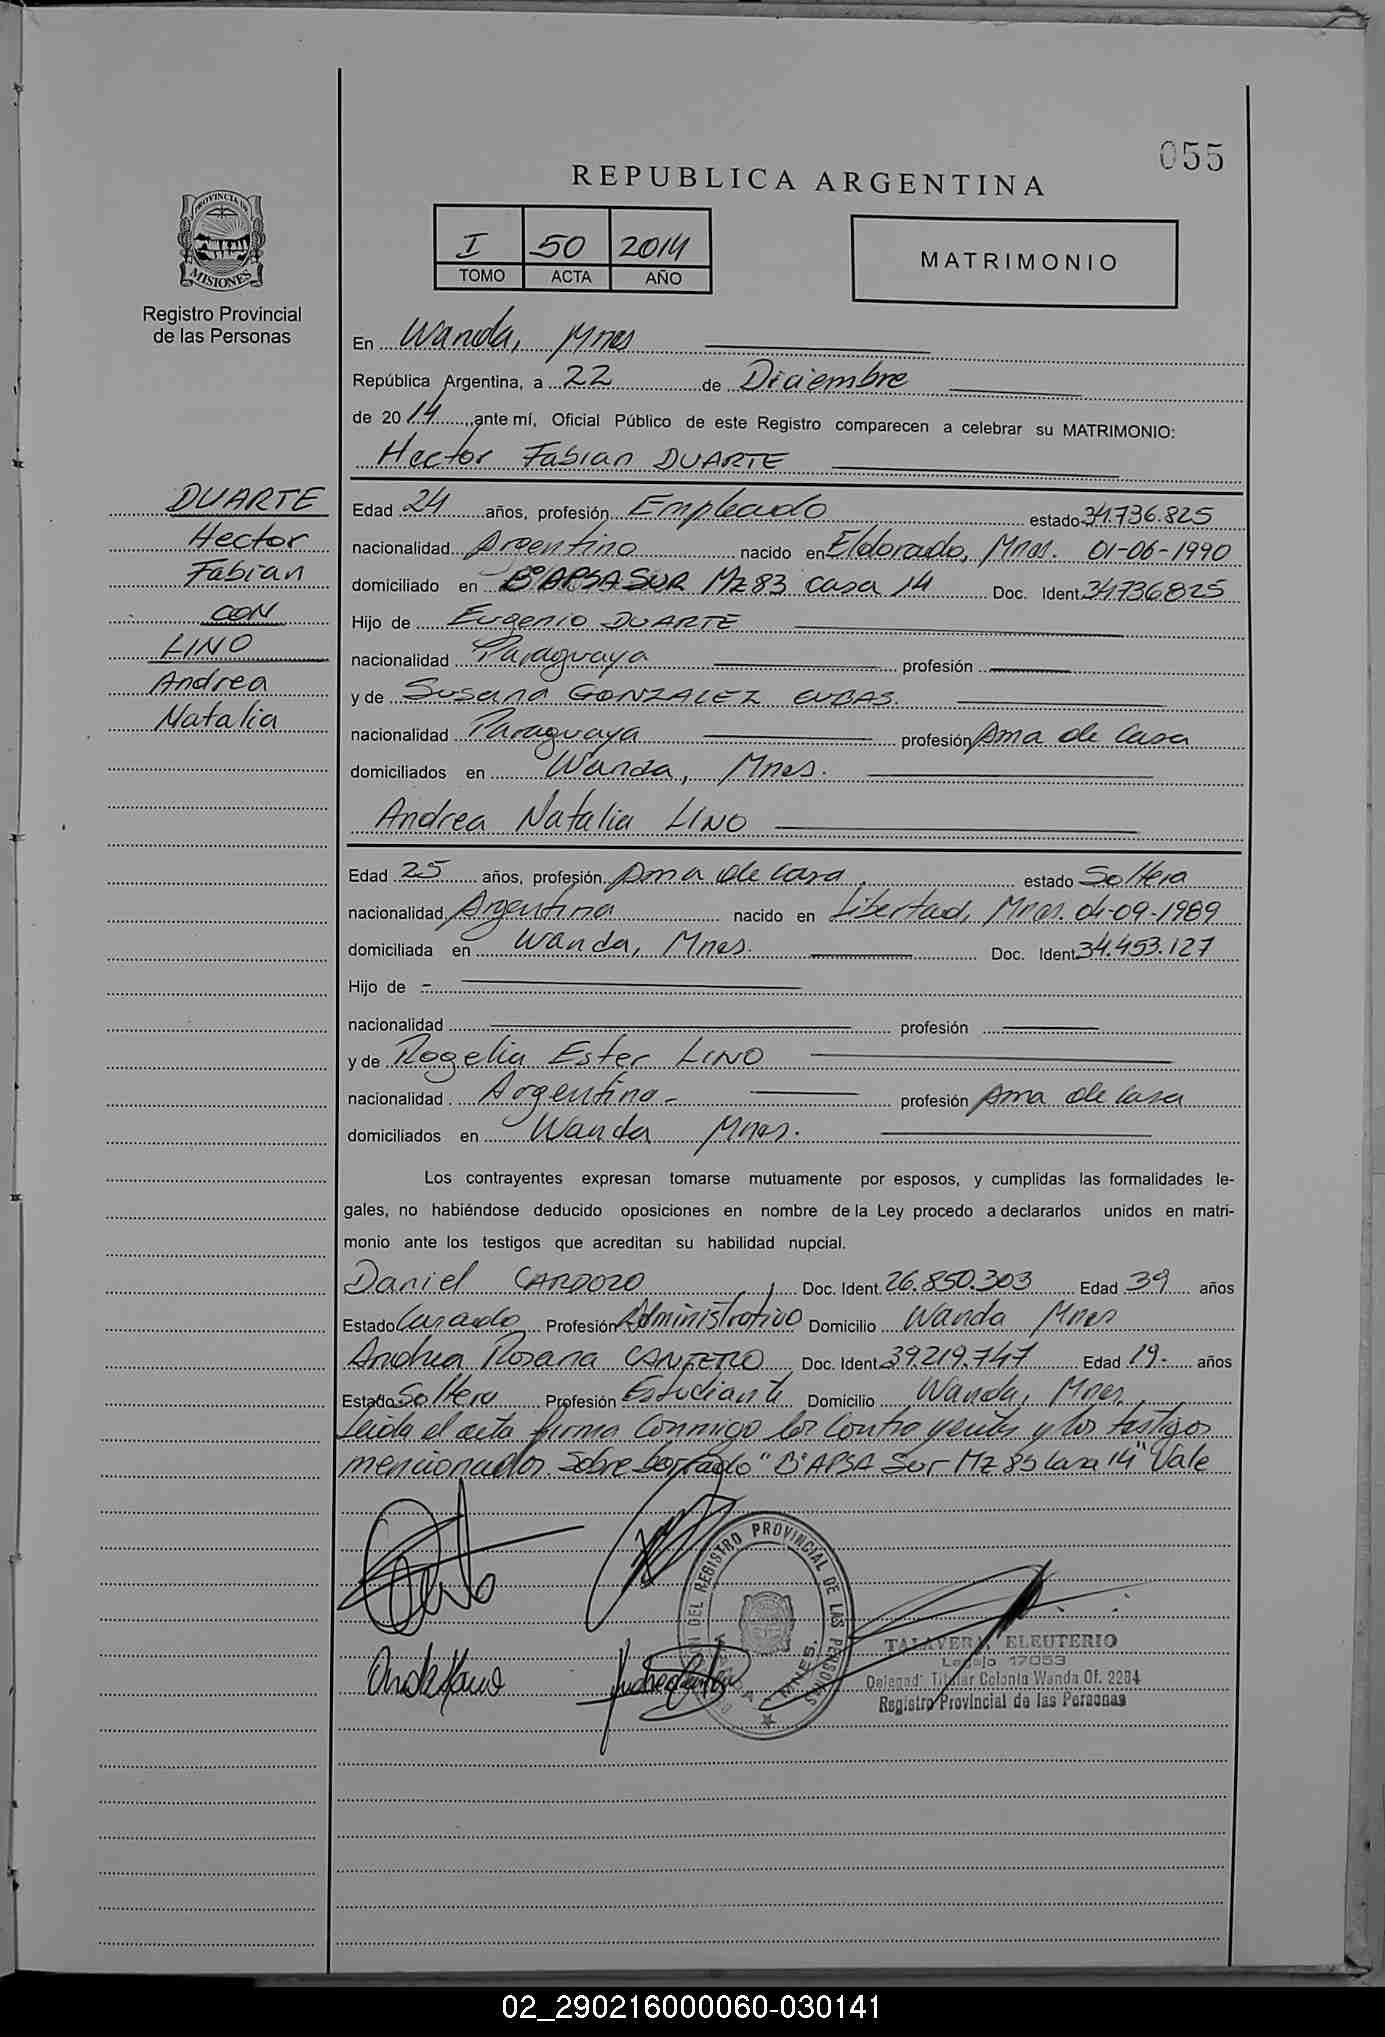 055
REPUBLICA ARGENTINA
PROVINCIA DE
MISIONES
Registro Provincial
de las Personas
I 50 2014
TOMO ACTA AÑO
MATRIMONIO
En Wanda, Mnes
República Argentina, a 22 de Diciembre
de 2014, ante mí, Oficial Público de este Registro comparecen a celebrar su MATRIMONIO:
Hector Fabian DUARTE
DUARTE
Hector
Fabian
CON
LINO
Andrea
Natalia
Edad 24 años, profesión Empleado estado 34.736.825
nacionalidad Argentino nacido en Eldorado, Mnes. 01-06-1990
domiciliado en B° APSA SUR Mz 83 casa 14 Doc. Ident. 34736825
Hijo de Eugenio DUARTE
nacionalidad Paraguaya profesión
y de Susana GONZALEZ CUBAS.
nacionalidad Paraguaya profesión Ama de Casa
domiciliados en Wanda, Mnes.
Andrea Natalia LINO
Edad 25 años, profesión Ama de Casa estado Soltera
nacionalidad Argentina nacido en Libertad, Mnes. 04-09-1989
domiciliada en Wanda, Mnes. Doc. Ident. 34.453.127
Hijo de -
nacionalidad profesión
y de Rogelia Ester LINO
nacionalidad Argentina.- profesión Ama de Casa
domiciliados en Wanda Mnes.
Los contrayentes expresan tomarse mutuamente por esposos, y cumplidas las formalidades le-
gales, no habiéndose deducido oposiciones en nombre de la Ley procedo a declararlos unidos en matri-
monio ante los testigos que acreditan su habilidad nupcial.
Daniel CARDOZO Doc. Ident. 26.850.303 Edad 39 años
Estado Casado Profesión Administrativo Domicilio Wanda Mnes
Andrea Rosana CANTERO Doc. Ident. 39.219.747 Edad 19.- años
Estado Soltera Profesión Estudiante Domicilio Wanda, Mnes.
Leida el acta firma conmigo los contrayentes y los testigos
mencionados. Sobre borrado "B° APSA Sur Mz 83 Casa 14" Vale
DEL REGISTRO PROVINCIAL DE LAS PERSONAS
MNES.
TALAVERA, ELEUTERIO
Legajo 17053
Delegad. Titular Colonia Wanda Of. 2284
Registro Provincial de las Personas
02_290216000060-030141